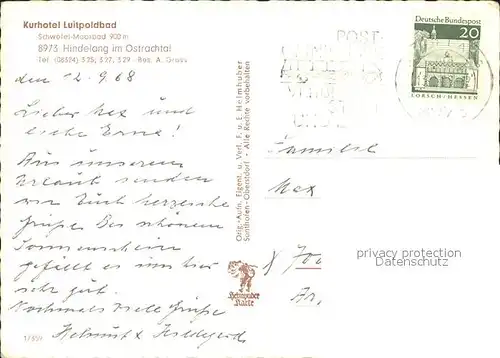 Kurhotel Luitpoldbad
Schwefel-Moorbad 900 m
8973 Hindelang im Ostrachtal
Tel (08324) 325, 327, 329 · Bes. A. Gross
den 2.9.68
Lieber Max und
liebe Erna!
Aus unserem
Urlaub senden
wir Euch herzliche
Grüße. Bei schönem
Sonnenschein
gefällt es uns hier
sehr gut.
Nochmals viele Grüße
Helmut & Hildegard
17859
Orig.-Aufn. Eigent. u. Verl. F. u. E. Heimhuber
Sonthofen-Oberstdorf · Alle Rechte vorbehalten
Heimhuber
Karte
POST
Deutsche Bundespost
20
LORSCH/HESSEN
Familie
Max
privacy protection
AnsichtskartenCenter